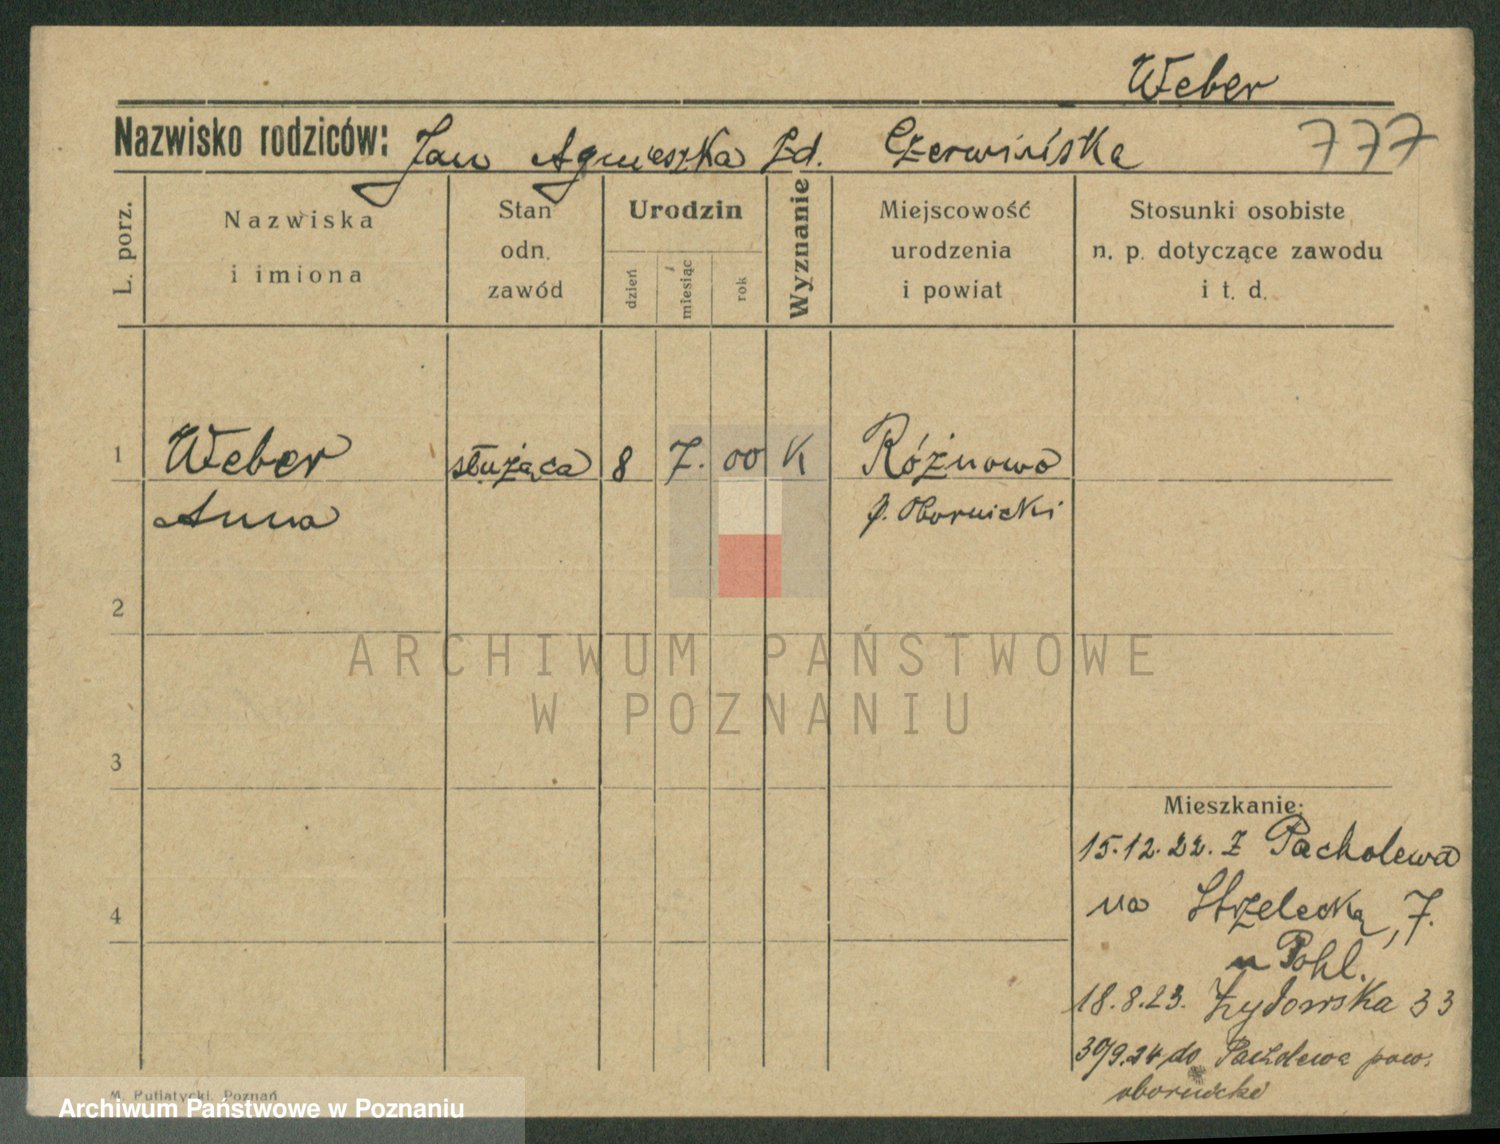 Weber
Nazwisko rodziców: Jan Agnieszka Zd. Czerwińska 777
L. porz.
Nazwiska
i imiona
Stan
odn.
zawód
Urodzin
dzień
miesiąc
rok
Wyznanie
Miejscowość
urodzenia
i powiat
Stosunki osobiste
n. p. dotyczące zawodu
i t. d.
1 Weber służąca 8 7. 00 K Różnowo
Anna p. Obornicki
2
3
4
Mieszkanie:
15.12.22. z Pacholewa
na Strzelecką, 7.
u Pohl.
18.8.23. Żydowska 33
30/9.24 do pow.
obornicki
M. Putiatycki, Poznań
ARCHIWUM PAŃSTWOWE
W POZNANIU
Archiwum Państwowe w Poznaniu